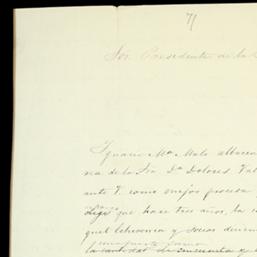 71
Sor. Presidente de la
Ignacio Ma. Malo albacea
ria de la Sra. Da. Dolores Val
ante V. como mejor proceda
Digo que hace tres años, la c
y socios
la cantidad de cincuenta y